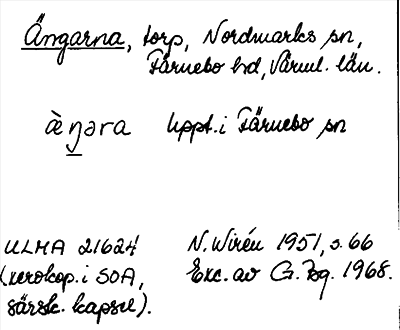 Ängarna, torp, Nordmarks sn,
Färnebo hd, Värml. län.
àŋəra uppt. i Färnebo sn
ULMA 21624
(xerokop. i SOA,
särsk. kapsel).
N. Wirén 1951, s. 66
Exc. av G. Bg. 1968.